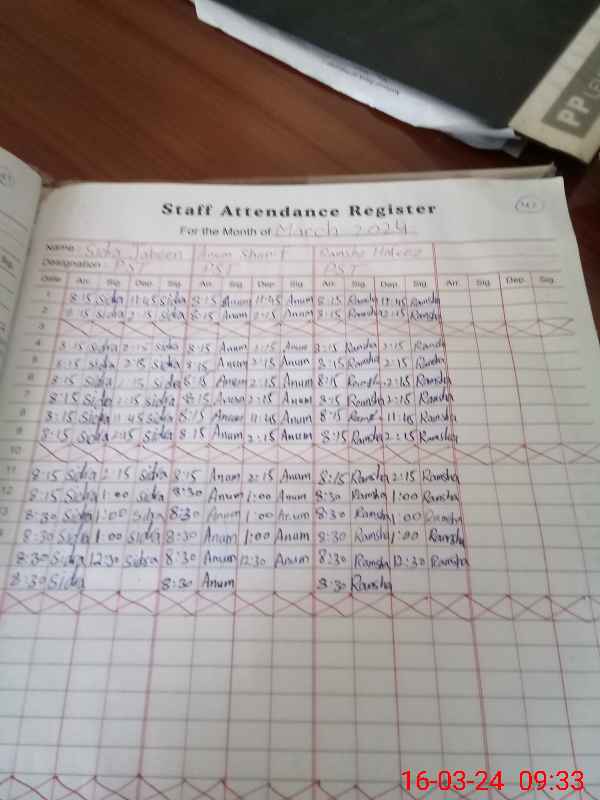 PP
Staff Attendance Register
For the Month of March 2024
Name: Sidra Jabeen Anum Sharif Ramsha Hafeez
Designation: PST PST PST
Date Arr. Sig. Dep. Sig. Arr. Sig. Dep. Sig. Arr. Sig. Dep. Sig. Arr. Sig. Dep. Sig.
1 8:15 Sidra 11:45 Sidra 8:15 Anum 11:45 Anum 8:15 Ramsha 11:45 Ramsha
2 8:15 Sidra 2:15 Sidra 8:15 Anum 2:15 Anum 8:15 Ramsha 2:15 Ramsha
3
4 8:15 Sidra 2:15 Sidra 8:15 Anum 2:15 Anum 8:15 Ramsha 2:15 Ramsha
5 8:15 Sidra 2:15 Sidra 8:15 Anum 2:15 Anum 8:15 Ramsha 2:15 Ramsha
6 8:15 Sidra 2:15 Sidra 8:15 Anum 2:15 Anum 8:15 Ramsha 2:15 Ramsha
7 8:15 Sidra 2:15 Sidra 8:15 Anum 2:15 Anum 8:15 Ramsha 2:15 Ramsha
8 8:15 Sidra 11:45 Sidra 8:15 Anum 11:45 Anum 8:15 Ramsha 11:45 Ramsha
9 8:15 Sidra 2:15 Sidra 8:15 Anum 2:15 Anum 8:15 Ramsha 2:15 Ramsha
10
11 8:15 Sidra 2:15 Sidra 8:15 Anum 2:15 Anum 8:15 Ramsha 2:15 Ramsha
12 8:15 Sidra 1:00 Sidra 8:30 Anum 1:00 Anum 8:30 Ramsha 1:00 Ramsha
13 8:30 Sidra 1:00 Sidra 8:30 Anum 1:00 Anum 8:30 Ramsha 1:00 Ramsha
8:30 Sidra 1:00 Sidra 8:30 Anum 1:00 Anum 8:30 Ramsha 1:00 Ramsha
8:30 Sidra 12:30 Sidra 8:30 Anum 12:30 Anum 8:30 Ramsha 12:30 Ramsha
8:30 Sidra 8:30 Anum 8:30 Ramsha
16-03-24 09:33